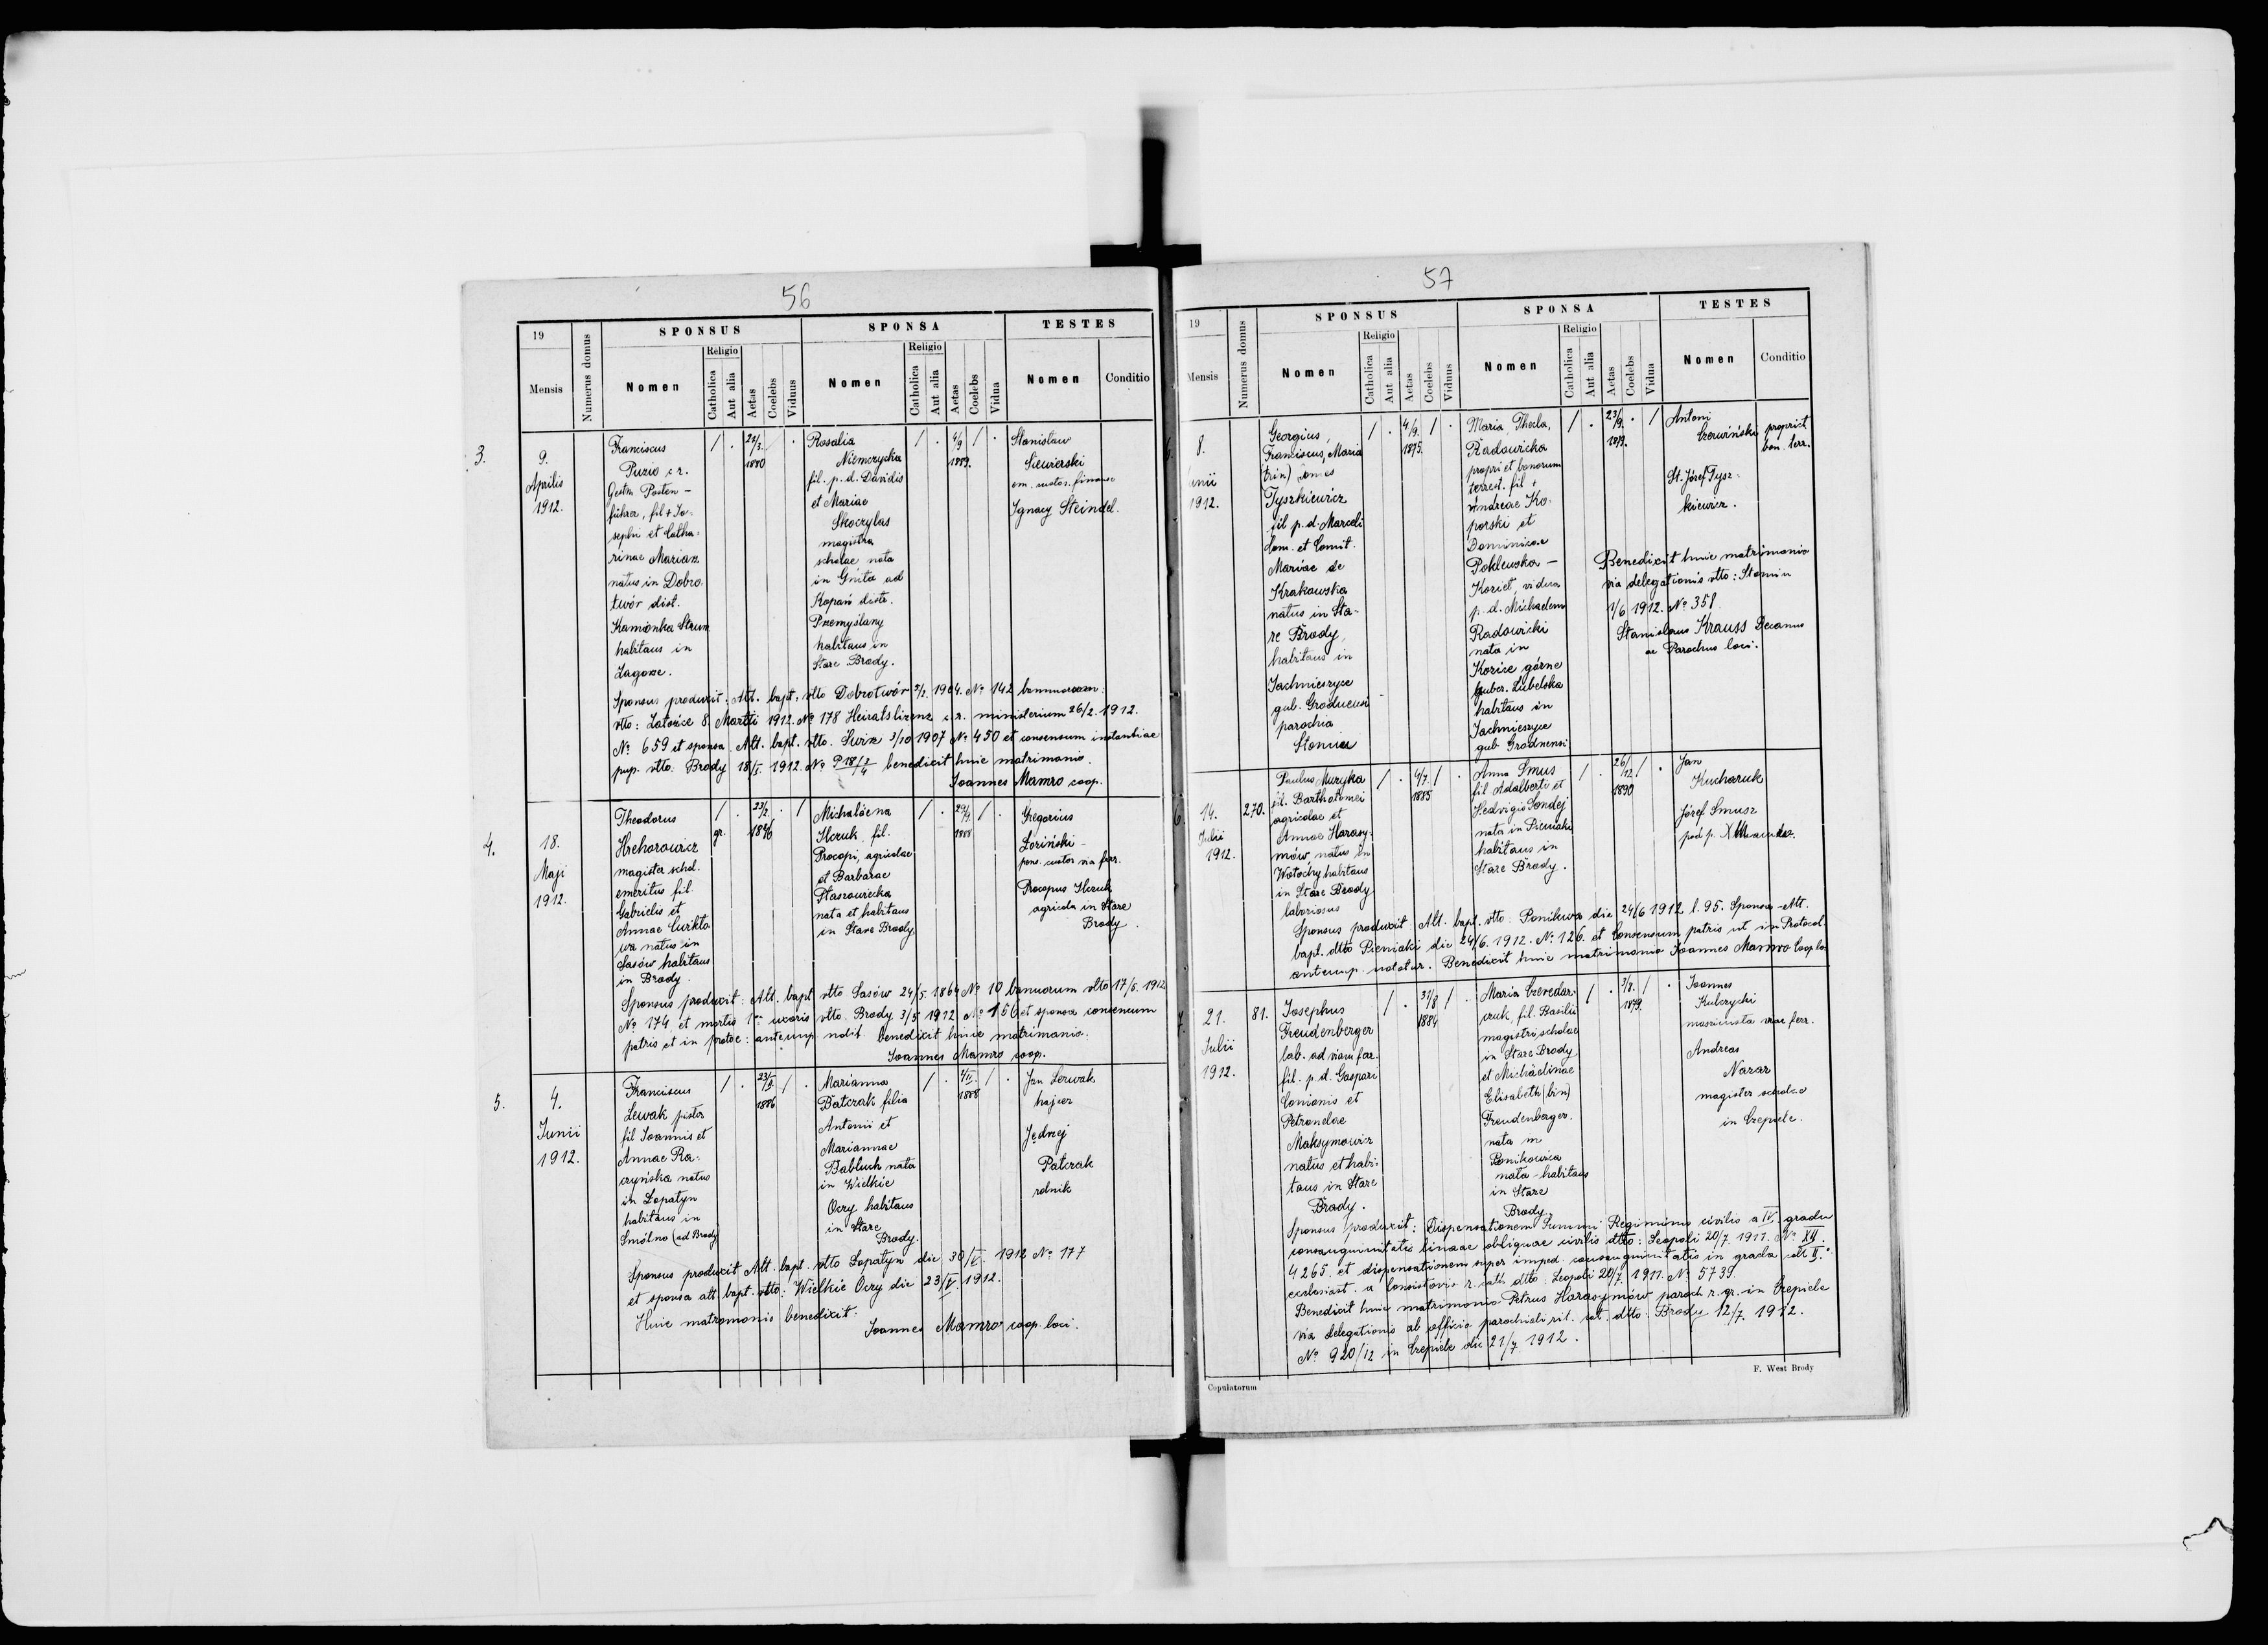 56
19
Mensis
Numerus domus
SPONSUS
Nomen
Religio
Catholica
Aut alia
Aetas
Coelebs
Viduus
SPONSA
Nomen
Religio
Catholica
Aut alia
Aetas
Coelebs
Vidua
TESTES
Nomen
Conditio
3.
9.
Aprilis
1912.
Franciscus
Puzio c. r.
Gestn Posten-
führer, fil + Jo-
sephi et Catha-
rinae Marian
natus in Dobro-
twór dist.
Kamionka Strum
habitans in
1880
Rosalia
Niemczycka
fil. p. d. Davidis
et Mariae
Skoczylas
magistra
scholae nata
in Gniła ad
distr.
Przemyślany
habitans in
Stare Brody.
4/9
1889.
Stanisław
Siewiorski
Ignacy Steindel.
Sponsus produxit: Att. bapt. dtto Dobrotwór 1904. No 142
dtto: 8 Martii 1912. No 178 Heiratslizenz c.r. ministerium 26/2. 1912.
No 659 et sponsa Att. bapt. dtto. Świrz 3/10 1907 No 450 et consensum instantiae
pup. dtto. Brody 1912. No benedixit huic matrimonio.
Joannes Mamro coop.
4.
18.
Maji
1912.
Theodorus
Hrehorowicz
magister schol.
emeritus fil.
Gabrielis et
Annae
natus in
Sasów habitans
in Brody.
gr.
23/2.
Michalena
Ilczuk fil.
Procopi, agricolae
et Barbarae
Ptaszowiecka
nata et habitans
in Stare Brody.
1888
Gregorius
Łoziński -
pens. custos via ferr.
Procopus Ilczuk
agricola in Stare
Brody.
Sponsus produxit: Att. bapt dtto Sasów 24/5. 1864 No 10 bannorum dtto 17/5. 1912
No 174 et mortis 1ae uxoris dtto. Brody 3/5 1912 No 156 et sponsa consensum
patris et in protoc: antecup. notit. Benedixit huic matrimonio.
Joannes Mamro coop.
5.
4.
Junii
1912.
Franciscus
Lewak pistor
fil Joannis et
Annae Ra-
czyńska natus
in Łopatyn
habitans in
Smólno (ad Brody)
1886
Marianna
Batczak filia
Antonii et
Mariannae
Babluch nata
in Wielkie
Oczy habitans
in Stare
Brody.
1888
Jan Lerwak
hajier
Jędrzej
Patczak
rolnik
Sponsus produxit Att. bapt. dtto Łopatyn die 30/V. 1912 No 177
et sponsa att. bapt. dtto: Wielkie Oczy die 23/V. 1912.
Huic matromonio benedixit:
Joannes Mamro coop. loci.
57
19
Mensis
Numerus domus
SPONSUS
Nomen
Religio
Catholica
Aut alia
Aetas
Coelebs
Viduus
SPONSA
Nomen
Religio
Catholica
Aut alia
Aetas
Coelebs
Vidua
TESTES
Nomen
Conditio
8.
unii
1912.
Georgius,
Franciscus, Maria
(trin) Comes
Tyszkiewicz
fil p. d. Marceli
Com. et Comit.
Mariae de
Krakowska
natus in Sta-
re Brody,
habitans in
Jachnieszyce
gub. Grodnensi
parochia
Słonim
4/9.
1875.
Maria Thecla,
Radowicka
propriet bonorum
terrest. fil +
Andreae Ko-
porski et
Dominicae
Poklewska -
Kozieł, vidua
p. d. Michaelem
Radowicki
nata in
Kozice górne
guber. Lubelska
habitans in
Jachnieszyce
gub Grodnensi
23/9.
Antoni
Czerwiński
propriet
bon. terr.
St. Józef Tysz-
kiewicz.
Benedixit huic matrimonio
via delegationis dtto: Słonim
1/6 1912. No 358.
Stanislaus Krauss Decanus
ac Parochus loci.
6.
14.
Julii
1912.
270.
Paulus Muzyka
fil. Bartholomei
agricolae et
Annae Harasy-
mów, natus in
Wołochy habitans
in Stare Brody
laboriosus
4/7.
1885
Anna Smus
fil Adalberti et
Hedvigis Gondej
nata in Pieniaki
habitans in
Stare Brody.
26/12
1890
Jan
Kucharuk
Józef Smusz
Sponsus produxit Att. bapt. dtto: Ponikwa die 24/6 1912 l. 95. Sponsa - Att.
bapt. dtto Pieniaki die 24/6. 1912. No. 126. et Consensum patris ut in Protocol.
antecup. notatur. Benedixit huic matrimonio Joannes Mamro Coop. loc
7.
21.
Julii
1912.
81.
Josephus
Freudenberger
lab. ad viam fer.
fil. p. d. Gaspari
Conionis et
Petronelae
Maksymowicz
natus et habi-
tans in Stare
Brody.
31/8
1884
Maria Czeredar-
czuk, fil. Basilii
magistri scholae
in Stare Brody
et Michaelinae
Elisabeth (bin)
Freudenberger.
nata in
Ponikowica
nata - habitans
in Stare
Brody.
3/8.
Joannes
Kulczycki
viae ferr.
Andreas
Nazar
magister scholae
in Czepiele.
Sponsus produxit: Dispensationem Summi Regiminis civilis a IV. gradu
consanguinitatis lineae obliquae civilis dtto: Leopoli 20/7. 1911. No XII.
4265. et dispensationem super imped. consanguinitatis in gradu II.
ecclesiast. a Consistorio r. lath dtto: Leopoli 20/7. 1911. No 5739.
Benedixit huic matrimonio Petrus Harasymów paroch r. gr. in Czepiele
via delegationis ab officio parochiali rit. lat. dtto: Brody 12/7. 1912.
No 920/12 in Czepiele die 21/7 1912.
Copulatorum
F. West Brody